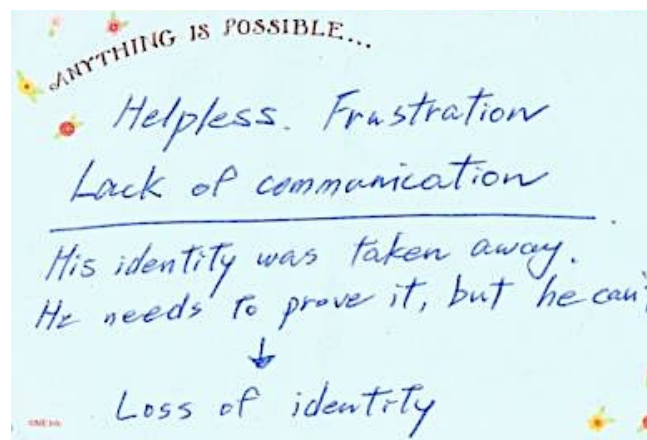 ANYTHING IS POSSIBLE...
Helpless. Frustration
Lack of communication
His identity was taken away.
He needs to prove it, but he can'
Loss of identity